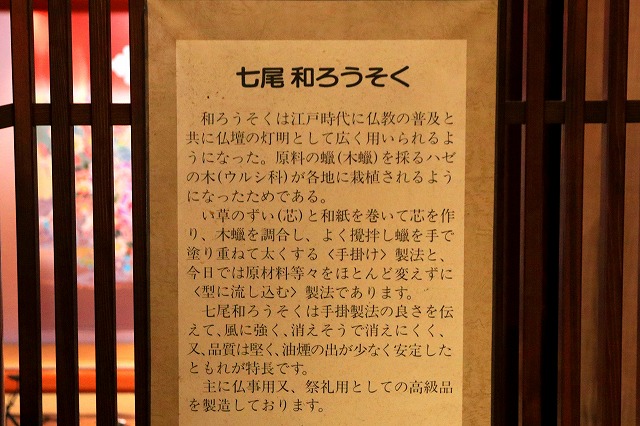 七尾 和ろうそく
和ろうそくは江戸時代に仏教の普及と
共に仏壇の灯明として広く用いられるよ
うになった。原料の蠟(木蠟)を採るハゼ
の木(ウルシ科)が各地に栽植されるよう
になったためである。
い草のずい(芯)と和紙を巻いて芯を作
り、木蠟を調合し、よく攪拌し蠟を手で
塗り重ねて太くする〈手掛け〉製法と、
今日では原材料等々をほとんど変えずに
〈型に流し込む〉製法であります。
七尾和ろうそくは手掛製法の良さを伝
えて、風に強く、消えそうで消えにくく、
又、品質は堅く、油煙の出が少なく安定した
ともれが特長です。
主に仏事用又、祭礼用としての高級品
を製造しております。